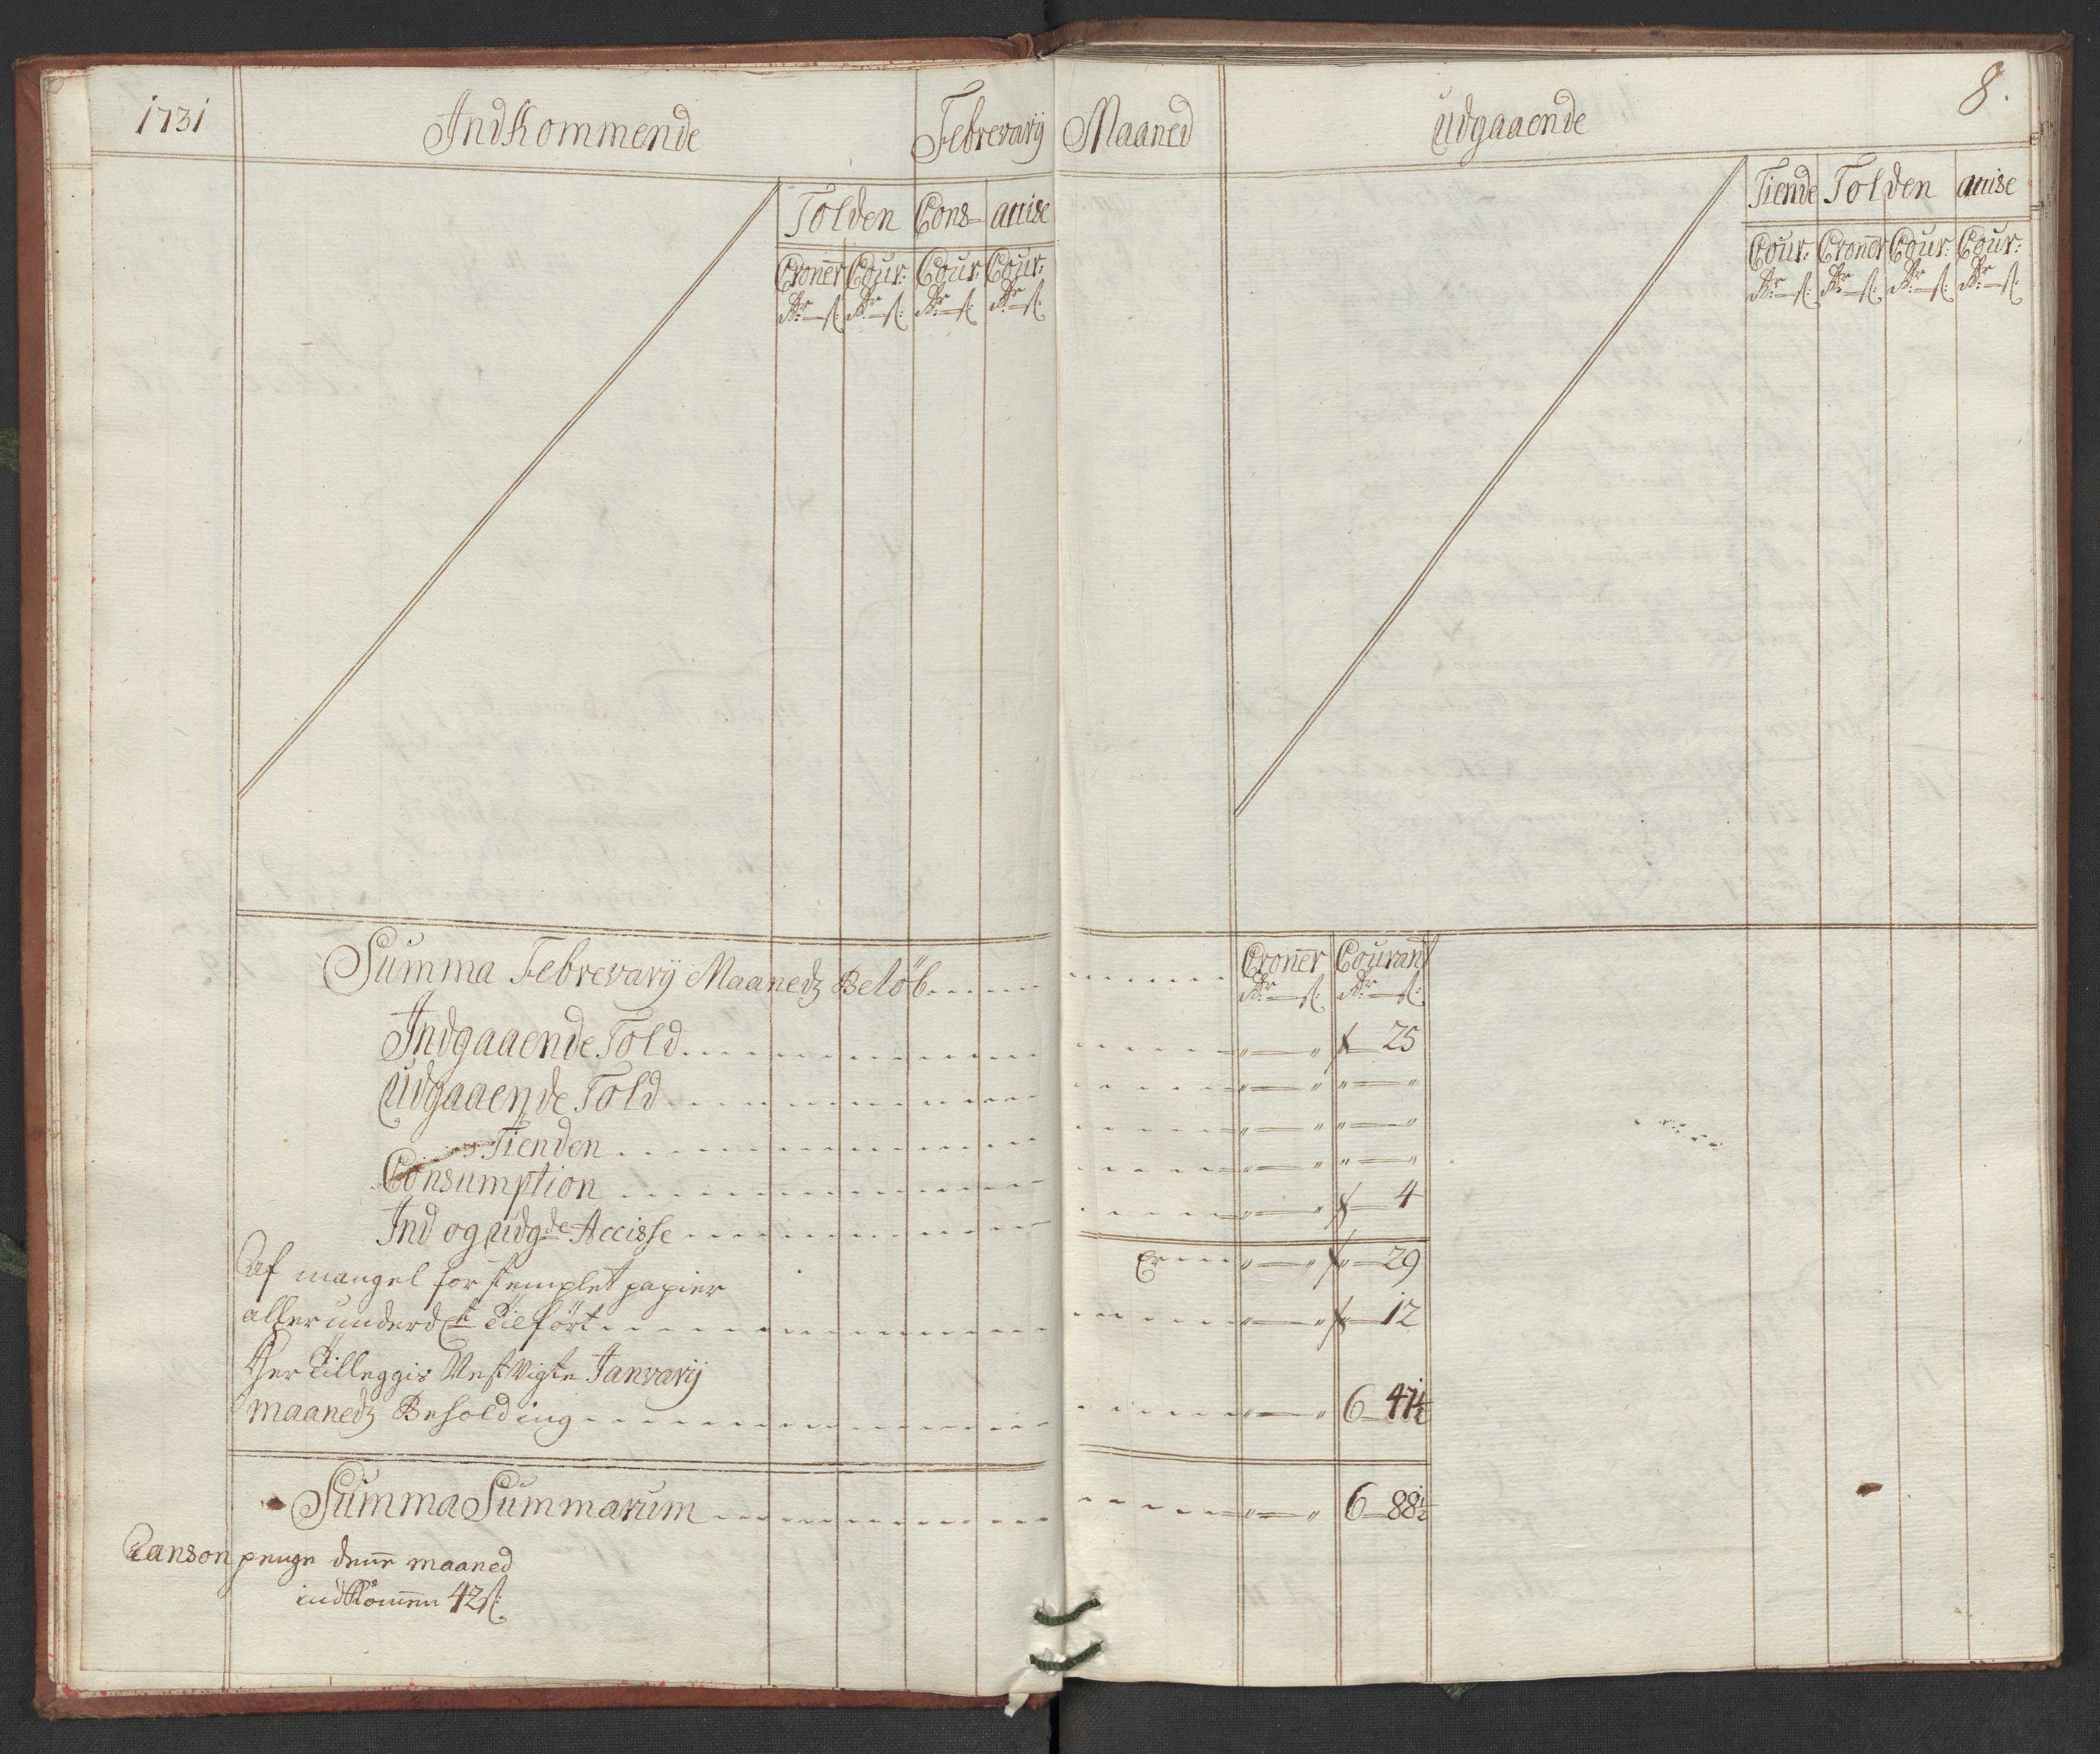 1731 Indkommende Febrevarij Maaned Udgaaende 8.
Tolden Cons- accise
Croner Cour: Cour: Cour:
Rdr — ß: Rdr — ß: Rdr — ß: Rdr — ß:
Tiende Tolden accise
Cour: Croner Cour: Cour:
Rdr — ß: Rdr — ß: Rdr — ß: Rdr — ß:
Summa Febrevarij Maanedz Beløb Croner Courant
Rdr — ß: Rdr — ß:
Indgaaende Told " — " " — 25
Udgaaende Told " — " " — "
Tienden " — " " — "
Consumption " — " " — "
Ind og udg:de Accisse " — " " — 4
Er " — " " — 29
Af mangel for stemplet papier
allerunderd:st Tilført " — " " — 12
Her Tilleggis Januarij
maanedz Besolding " — " 6 — 47½
Summa Summarum " — " 6 — 88½
penge denne maaned
indkommen 42 ß: